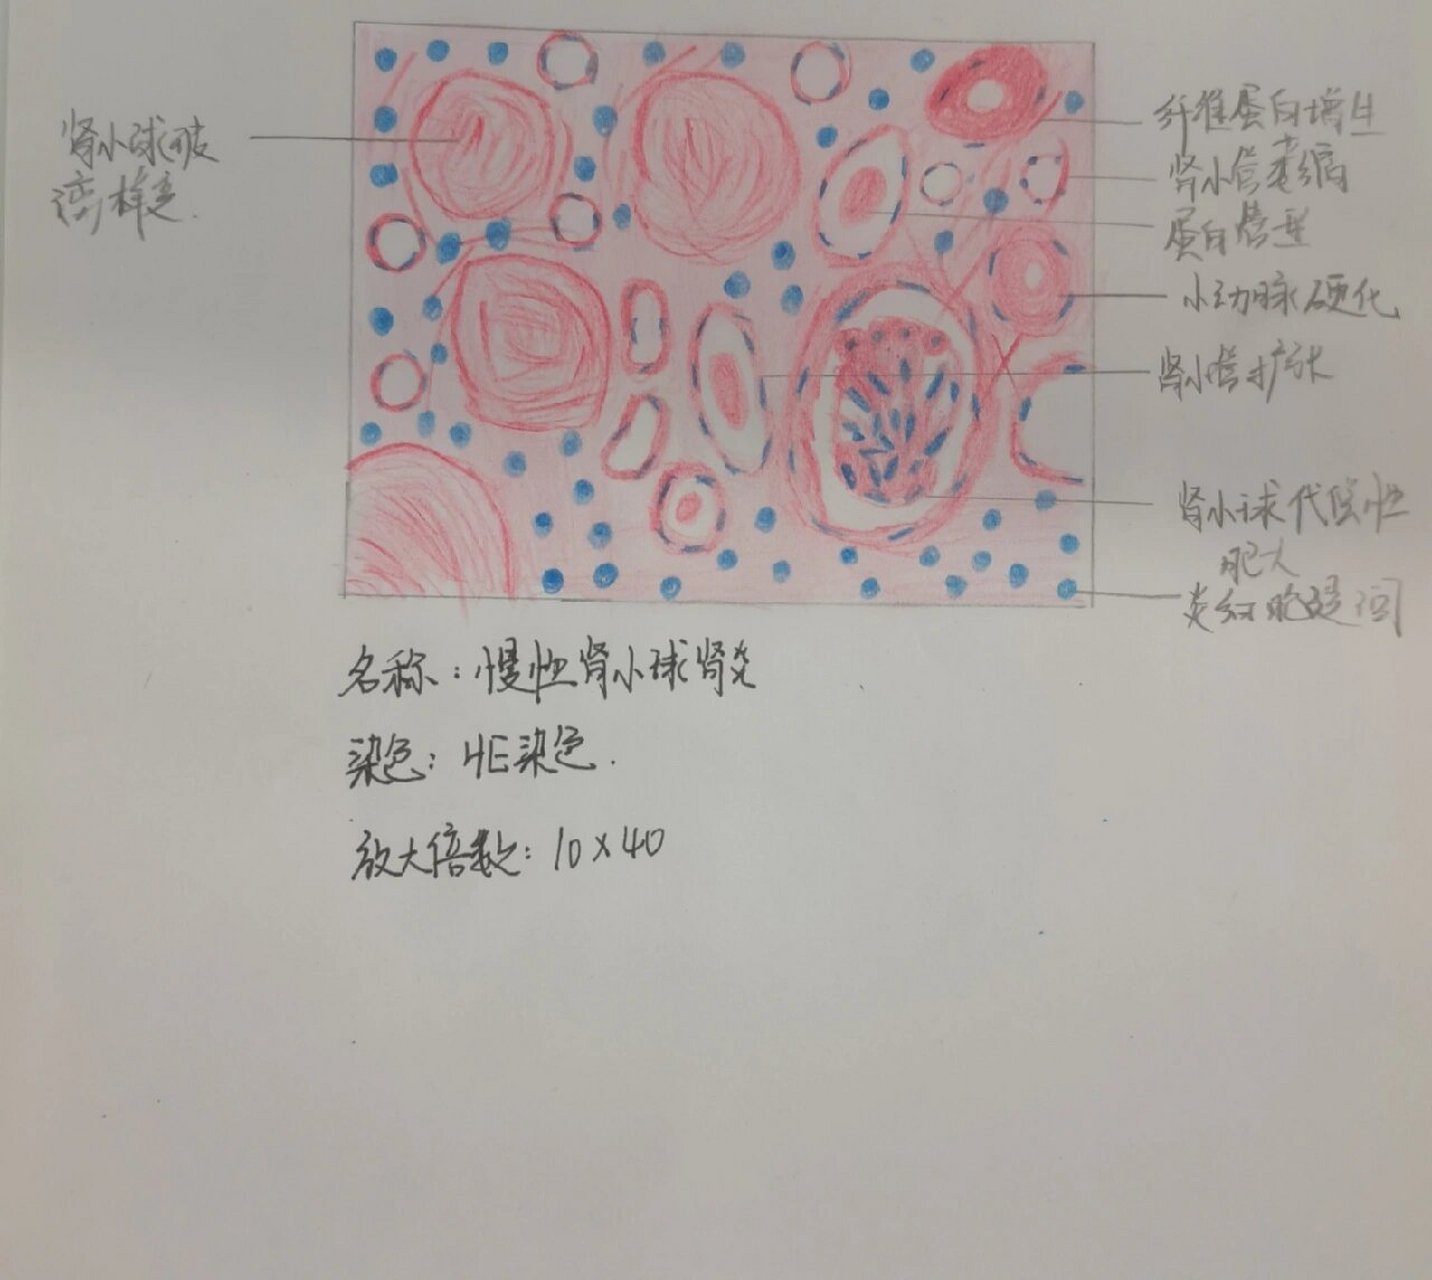 肾小球玻
璃样变.
纤维蛋白增生
肾小管萎缩
蛋白管型
小动脉硬化
肾小管扩张
肾小球代偿性
肥大
炎细胞浸润
名称：慢性肾小球肾炎
染色：HE染色.
放大倍数：10×40